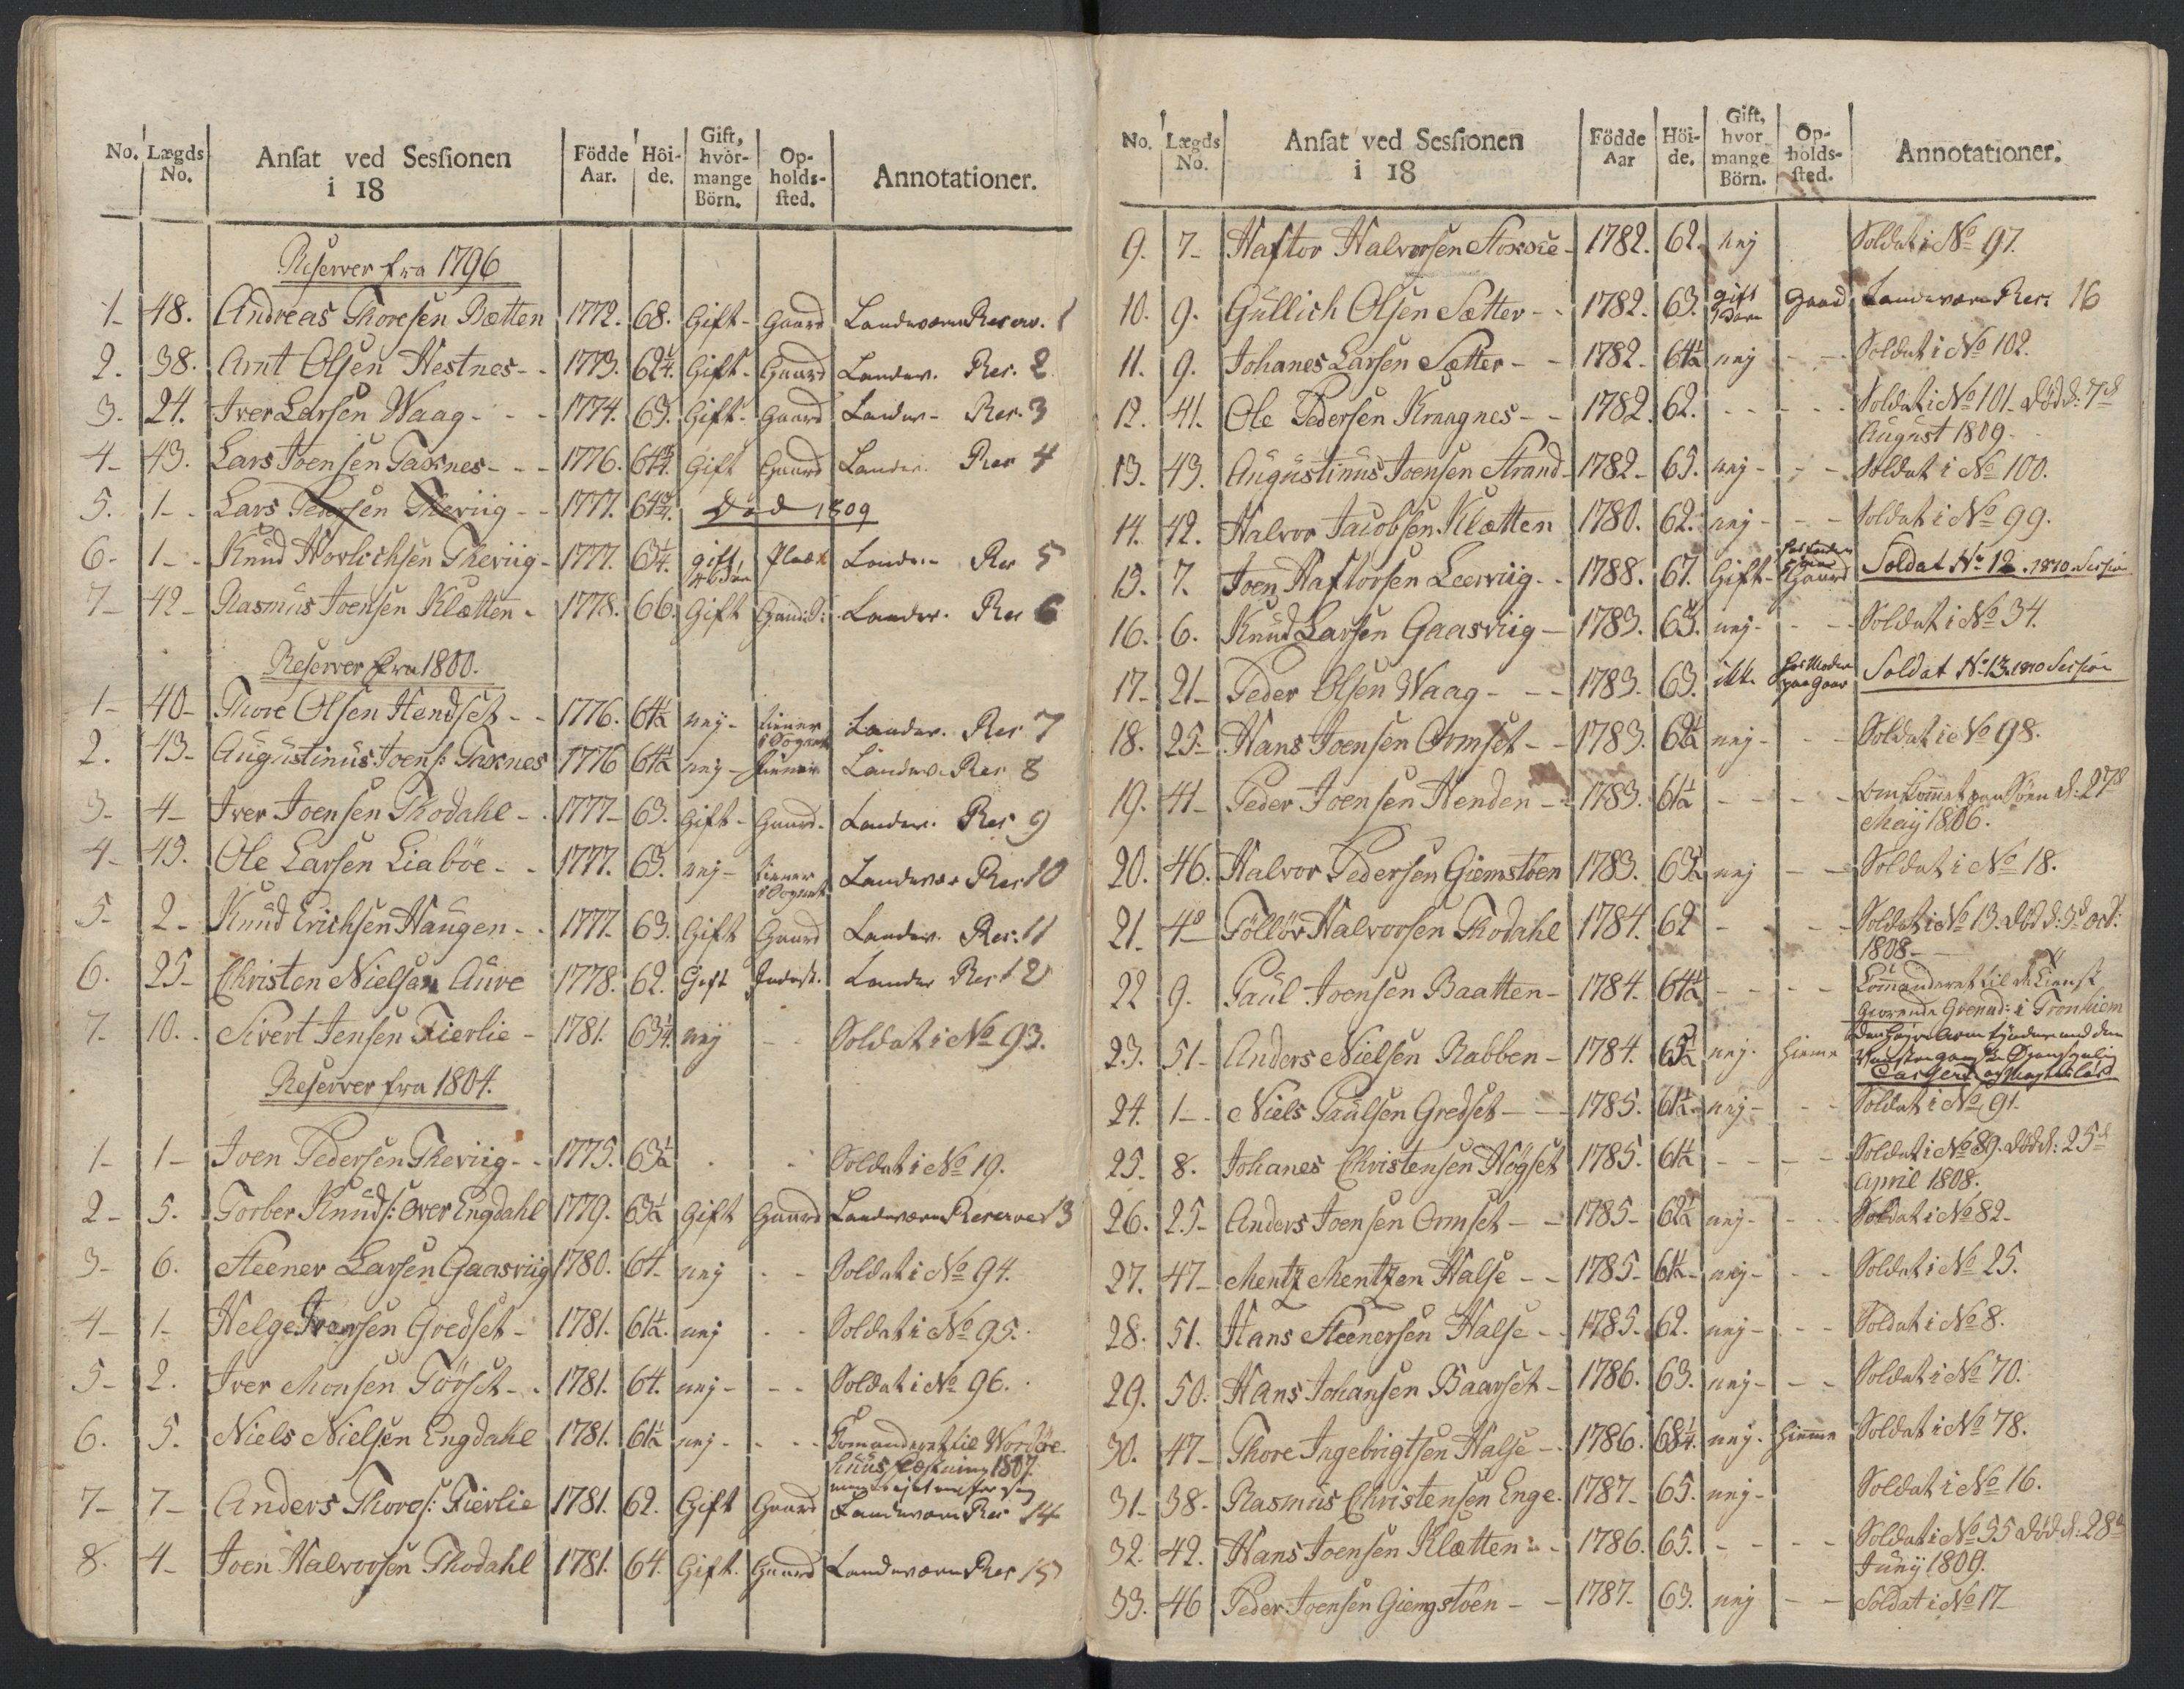 No. Lægds No. Ansat ved Sessionen i 18 Födde Aar. Höi-de. Gift, hvor-mange Börn. Op-holds-sted. Annotationer.
Reserver fra 1796
1- 48. Andreas Thoresen Bætten 1772. 68. Gift- Gaard Landeværn Reserv. 1
2. 38. Arnt Olsen Hestnes - - 1773. 62¼. Gift- Gaard Landev. Res. 2
3. 24. Iver Larsen Waag - - - 1774. 63. Gift- Gaard Landev- Res. 3
4- 43. Lars Joensen Taxnes - - - 1776. 64¾. Gift Gaard Landev. Res 4
5. 1- Lars Pedersen Theviig - - 1777. 64¾. Död 1809
6- 1- Knud Hovlichsen Theviig - 1777. 63¼. gift Plads Landev- Res 5
7- 42- Rasmus Joensen Klætten - 1778. 66. Gift Landev. Res 6
Reserver fra 1800.
1- 40- Thore Olsen Hendset - - 1776. 64½ nej- tiener i Sognet Landev. Res 7
2. 43- Augustinus Joens: Taxnes 1776 64½ nej- tiener Landev. Res 8
3- 4- Iver Joensen Thodahl - - 1777- 63. Gift- Gaard- Landev. Res 9
4- 49. Ole Larsen Liaböe - - 1777. 63. nej- tiener i Sognet Landevær Res 10
5- 2- Knud Erichsen Haugen - - 1777. 63. Gift Gaard Landev. Res. 11
6. 25- Christen Nielsen Aure 1778. 62. Gift Inderst. Landev Res 12
7- 10. Sivert Jensen Fierlie - 1781. 63¼. nej - - Soldat i No 93.
Reserver fra 1804.
1- 1- Joen Pedersen Theviig - - 1775. 63½ - - Soldat i No 19.
2- 5. Torber Knuds: Over Engdahl 1779. 63½ Gift Gaard Landeværn Reserve 13
3- 6. Steener Larsen Gaasviig 1780. 64- nej - - Soldat i No 94.
4- 1- Helge Iversen Gredset - 1781. 61½. nej - - Soldat i No 95.
5- 2. Iver Monsen Törset - - 1781. 64. nej- - - Soldat i No 96.
6. 5. Niels Nielsen Engdahl 1781. 61½ nej- - - Comanderet til Wordöe-
huus Fæstning 1807.
7- 7- Anders Thores: Fierlie 1781. 62. Gift Gaard Landeværn Res 14
8. 4- Joen Halvorsen Thodahl 1781. 64. Gift. Gaard Landeværn Res 15
No. Lægds No. Ansat ved Sessionen i 18 Födde Aar Höi-de. Gift, hvor mange Börn. Op-holds-sted. Annotationer.
9. 7- Haftor Halvorsen - 1782. 62. nej Soldat i No 97.
10. 9. Gullich Olsen Sætter - - 1782. 63. gift Gaard Landeværn Res. 16
11. 9. Johanes Larsen Sætter - - 1782- 64½ nej - - Soldat i No 102.
12. 41. Ole Pedersen Kraagnes - - 1782. 62. - - - - Soldat i No 101. död d: 7d
August 1809-
13. 43. Augustinus Joensen Strand- 1782- 65. nej- - - Soldat i No 100.
14. 42. Halvor Jacobsen Klætten 1780. 62. nej- - - Soldat i No 99.
15. 7. Joen Haftorsen Leerviig - - 1788. 67. Gift- Gaard Soldat No 12. 1810. Session
16. 6. Knud Larsen Gaasviig - 1783. nej- - - Soldat i No 34.
17- 21- Peder Olsen Waag - - - 1783. 63. ikke hos Moder paa Gaar Soldat No 13. 1810 Session
18. 25- Hans Joensen Ormset - - 1783. 62½ nej- - - Soldat i No 98.
19. 41- Peder Joensen Henden - - 1783. 61½ - - - - omkommet paa Söen d: 27d
Maij 1806.
20. 46. Halvor Pedersen Giemstöen 1783. 63½ nej - - Soldat i No 18.
21. 4- Föllör Halvorsen Thodahl 1784. 62 - - - Soldat i No 13. död d: 3d oct:
1808-
22 9. Paul Joensen Baatten - 1784. 64½ - - - - Comanderet til
Grenad: i Tronhiem
23. 51- Anders Nielsen Rabben - 1784. 65½ nej. hieme
Casseret
24. 1- Niels Paulsen Gredset - - 1785. 61½ nej- - Soldat i No 91-
25. 8. Johanes Christensen Högset 1785. 61½ - - - - Soldat i No 89. död d: 25d
April 1808.
26. 25- Anders Joensen Ormset - - 1785- 62½ nej- - - Soldat i No 82-
27. 47- Mentz Mentzen Halse - - 1785- 61½- nej- - - Soldat i No 25.
28. 51. Hans Steenersen Halse - - 1785- 62. nej- - - Soldat i No 8.
29. 50. Hans Johansen Baarset - 1786. 63. nej- - - Soldat i No 70.
30. 47- Thore Ingebrigtsen Halse - 1786. 68¼. nej- hieme Soldat i No 78.
31. 38- Rasmus Christensen Enge. 1787- 65. nej- Soldat i No 16.
32. 42. Hans Joensen Klætten - - 1786. 65. - - - - Soldat i No 55 död d: 28d
Junij 1809.
33. 46 Peder Joensen Giemstöen - - 1787- 63. nej - - Soldat i No 17